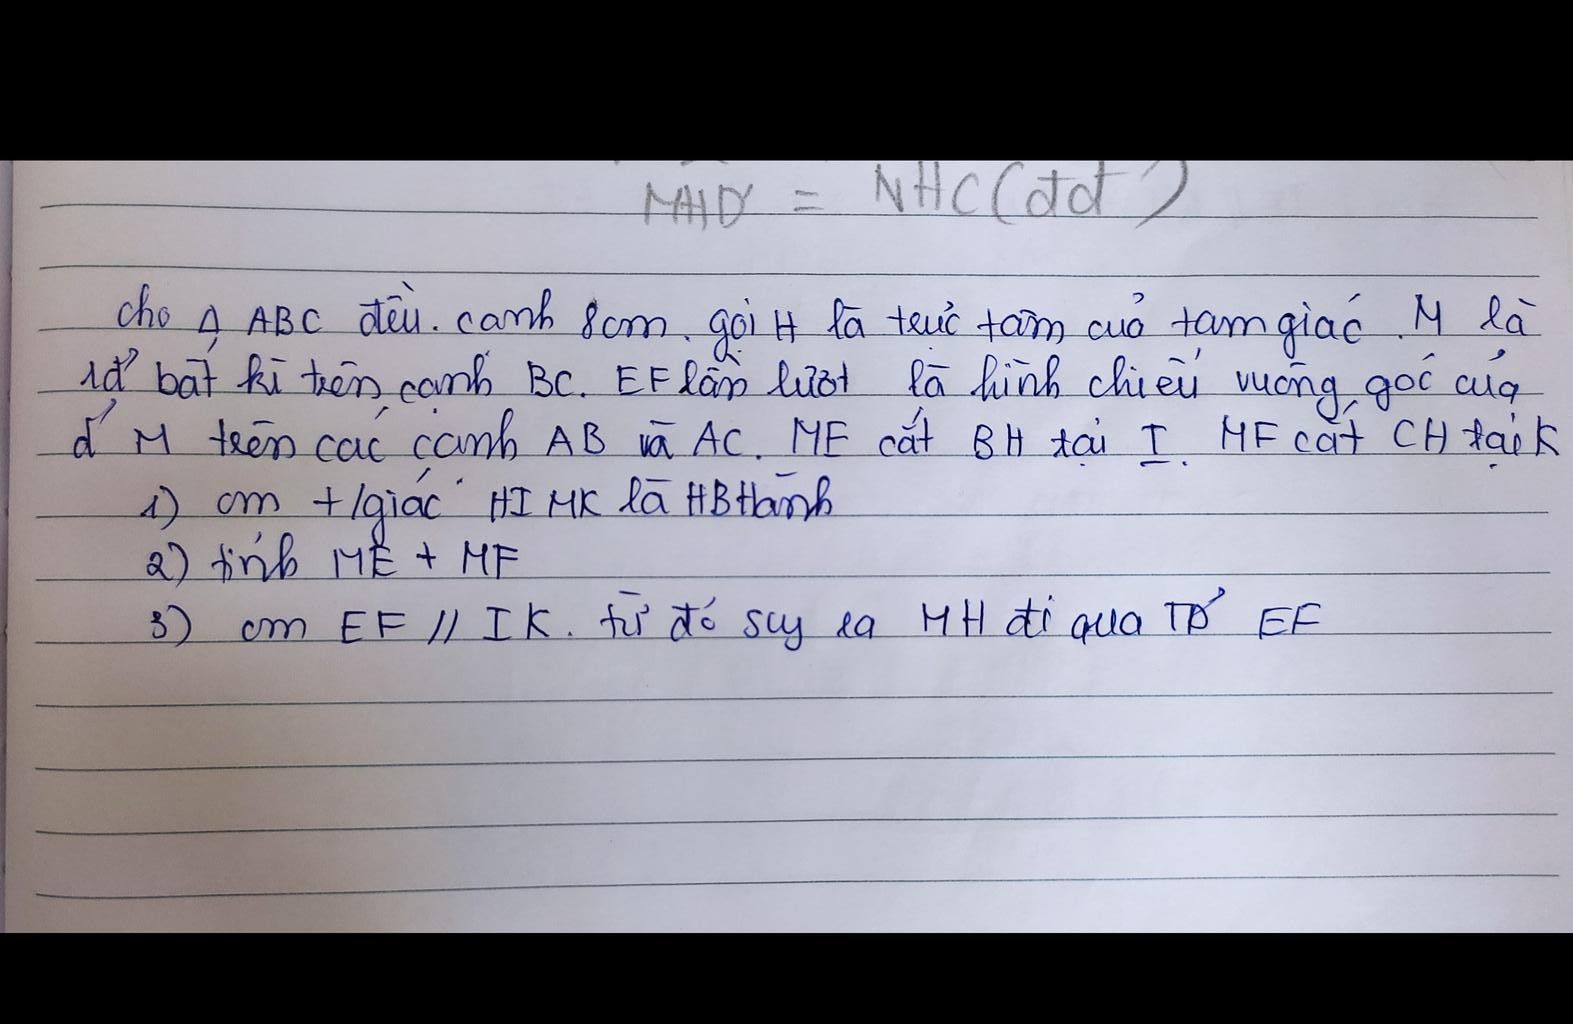 MHD = NHC (đđ)
cho Δ ABC đều. cạnh 8cm. gọi H là trực tâm của tam giác. M là
1đ' bất kì trên cạnh BC. EF lần lượt là hình chiếu vuông góc của
đ' M trên các cạnh AB và AC. ME cắt BH tại I. MF cắt CH tại K
1) cm t/giác HIMK là HBHành
2) tính ME + MF
3) cm EF // IK. từ đó suy ra MH đi qua TĐ' EF